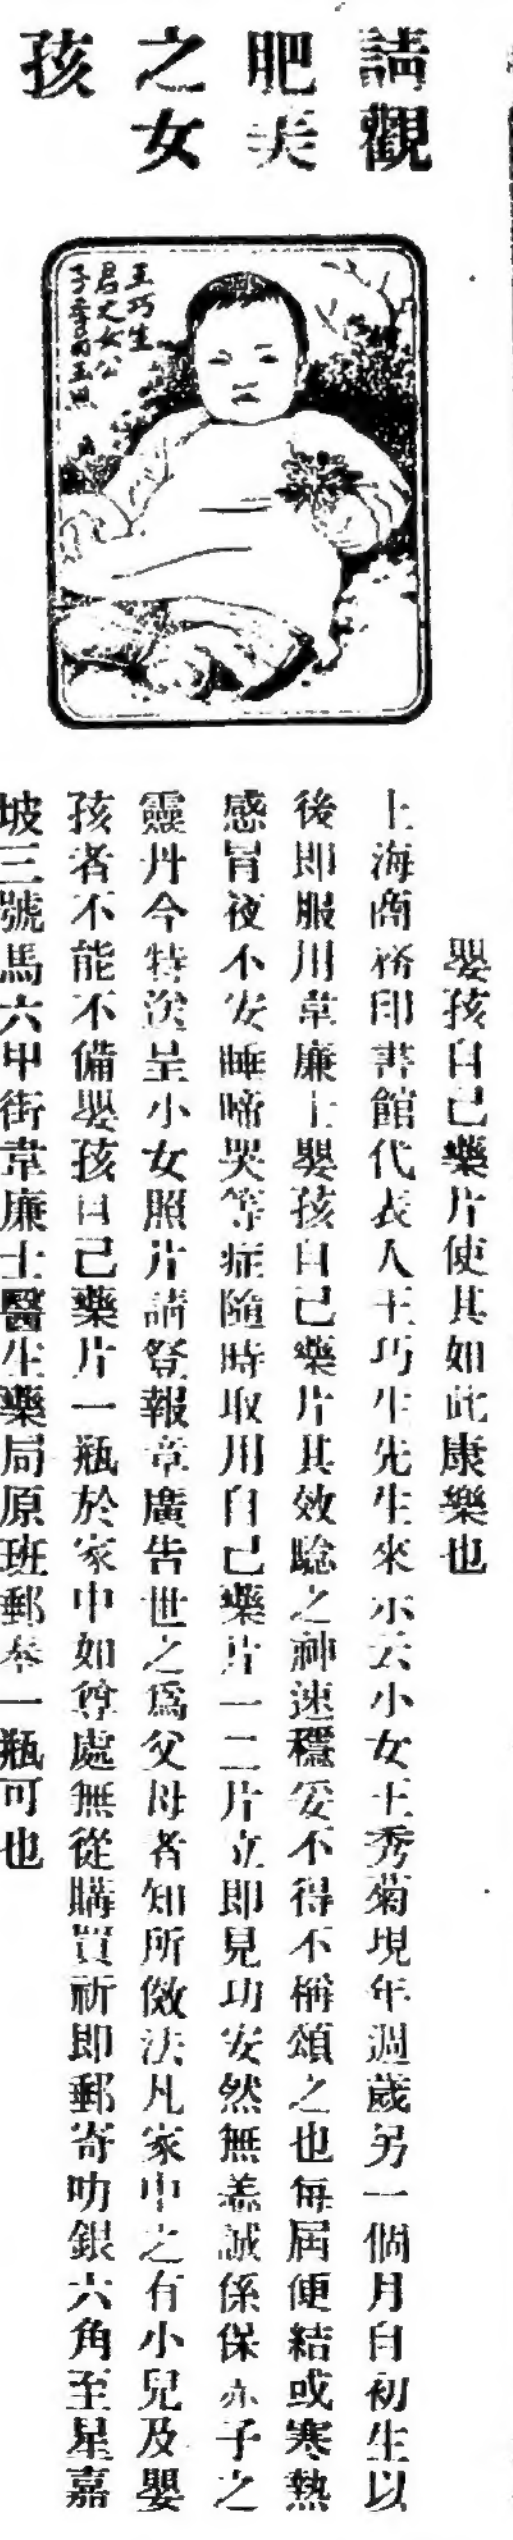 請觀
肥美
之女
孩
王巧生
君之女公
子秀菊玉照
嬰孩自己藥片使其如此康樂也
上海商務印書館代表人王巧生先生來示云小女王秀菊現年週歲另一個月自初生以
後即服用韋廉士嬰孩自己藥片其效驗之神速穩妥不得不稱頌之也每屆便結或寒熱
感冒夜不安睡啼哭等症隨時取用自己藥片一二片立即見功安然無恙誠係保赤子之
靈丹今特送呈小女照片請登報章廣告世之爲父母者知所傚法凡家中之有小兒及嬰
孩者不能不備嬰孩自己藥片一瓶於家中如尊處無從購買祈即郵寄叻銀六角至星嘉
坡三號馬六甲街韋廉士醫生藥局原班郵奉一瓶可也